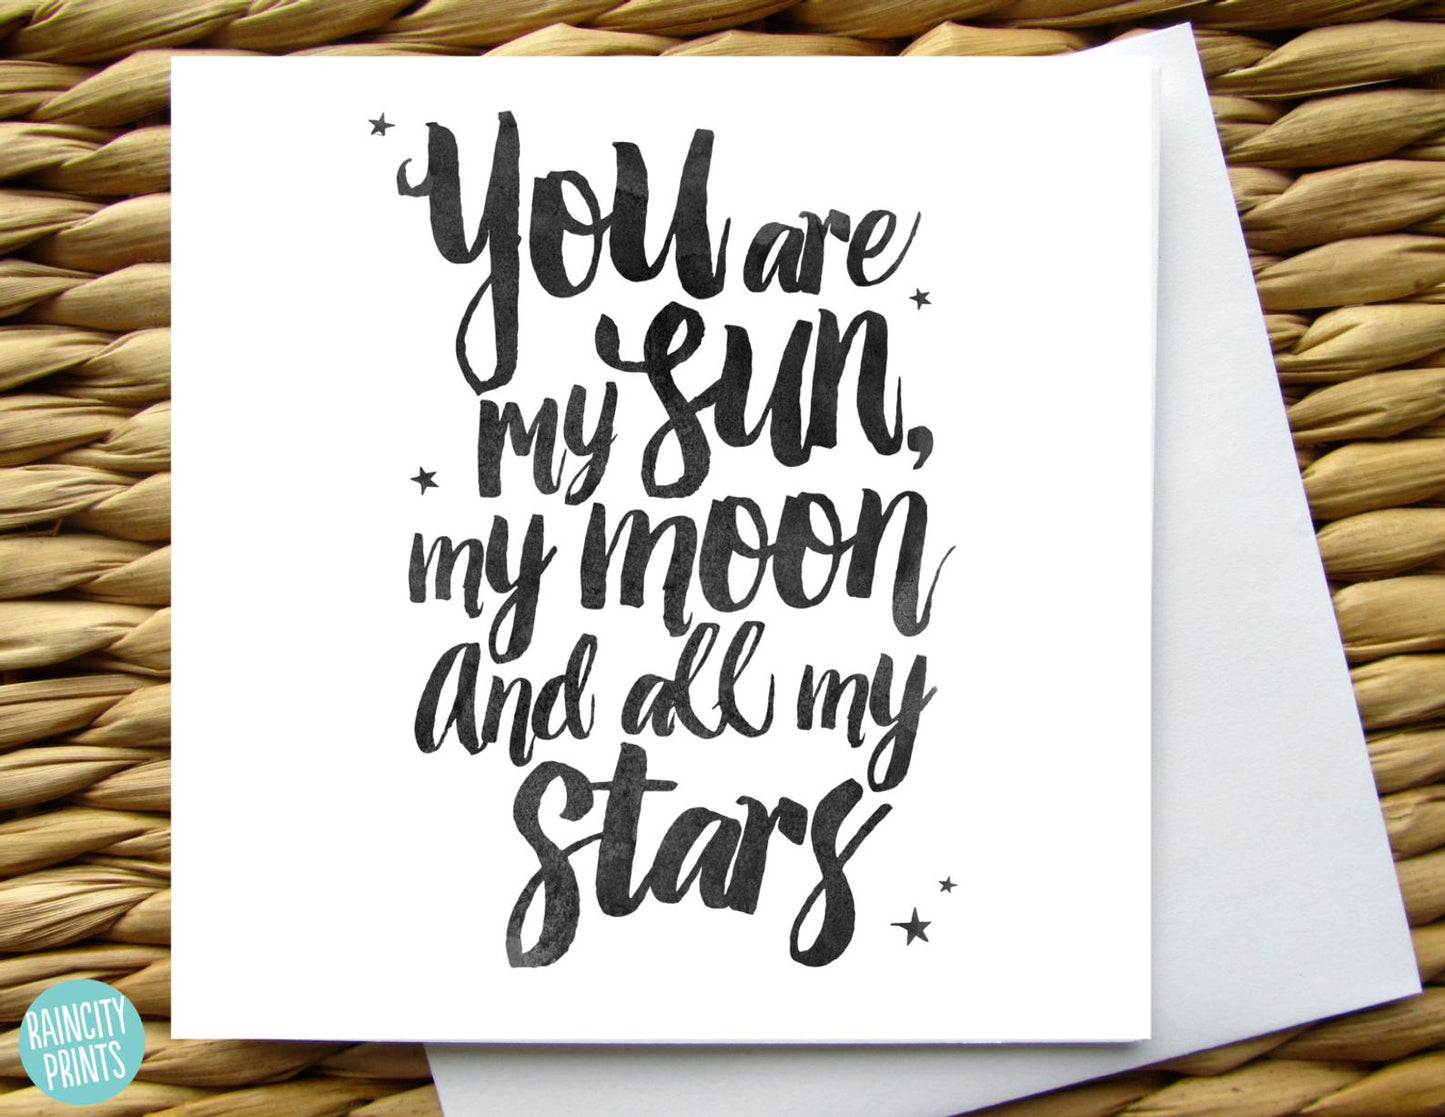 You are
my sun,
my moon
and all my
stars
RAINCITY
PRINTS